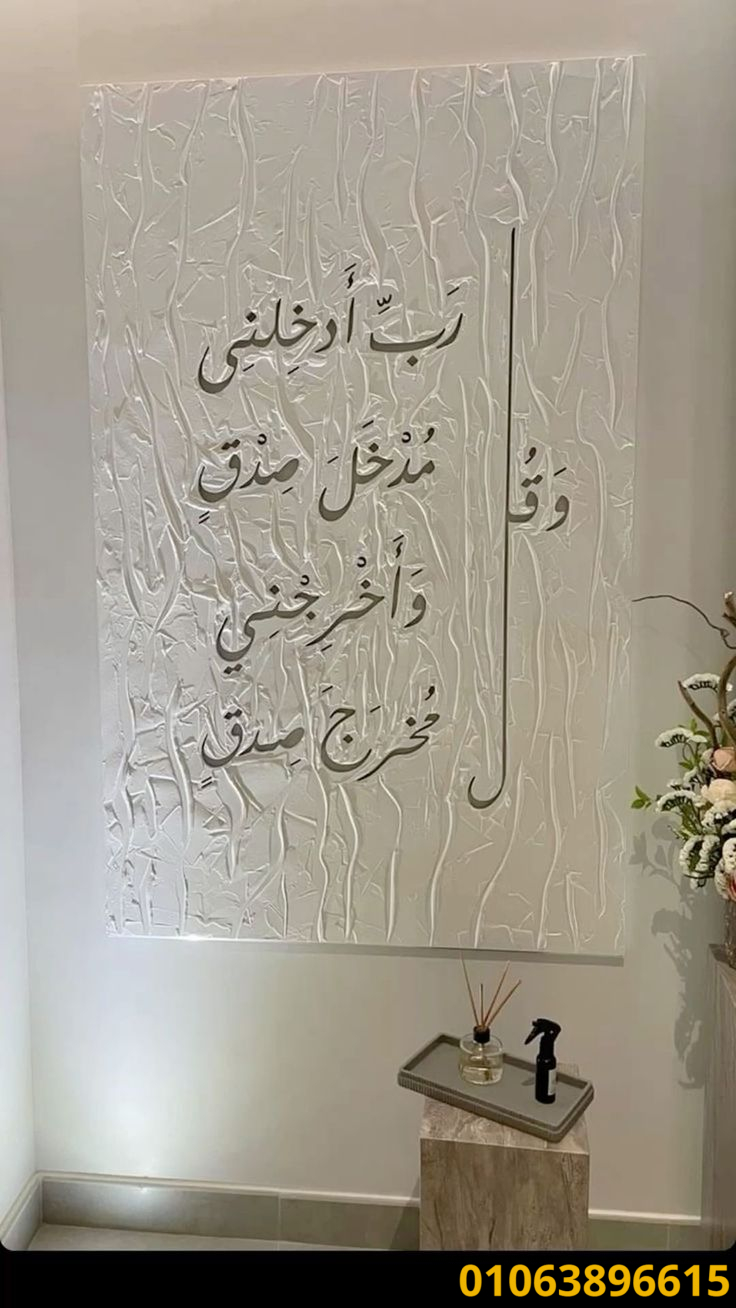 وَقُل
رَبِّ أَدخِلنِى
مُدْخَلَ صِدْقٍ
وَأَخْرِجْنِي
مُخرَجَ صِدقٍ
01063896615